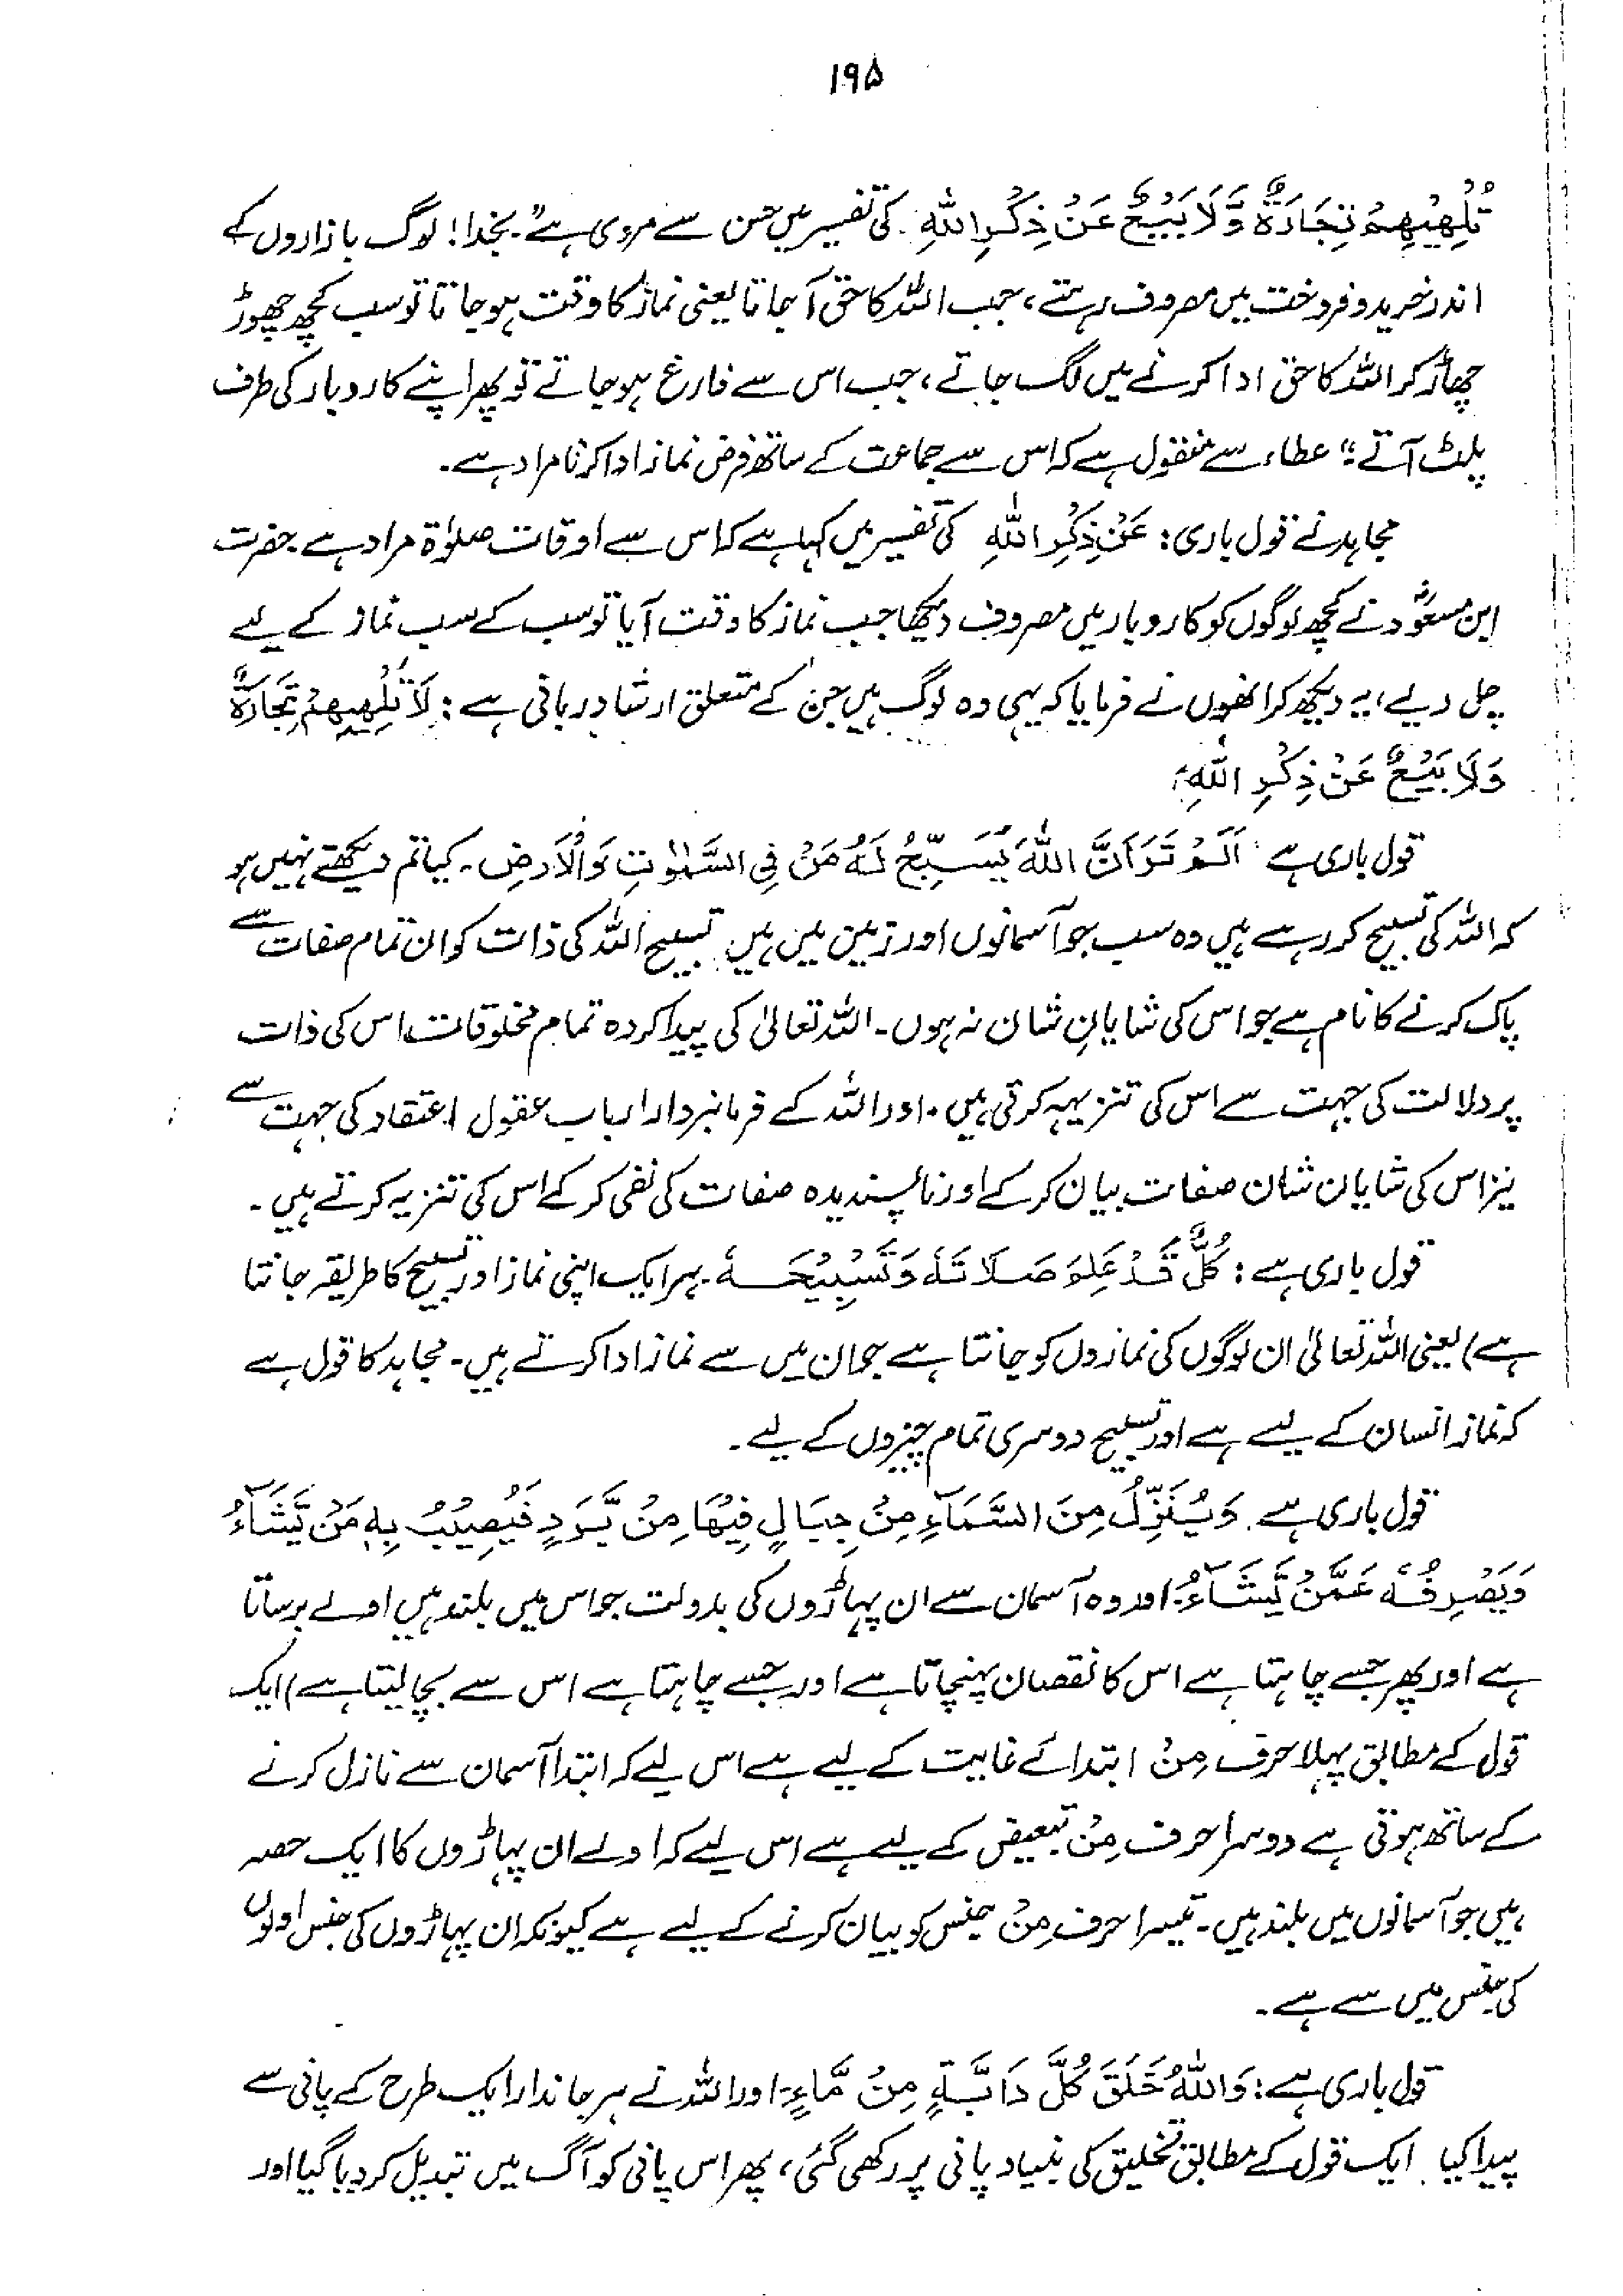 ۱۹۵
تُلْهِيْهِمْ تِجَارَةٌ وَّلَا بَيْعٌ عَنْ ذِكْرِ اللّٰهِ۔ کی تفسیر میں حسن سے مروی ہے "بخدا! لوگ بازاروں کے
اندر خرید و فروخت میں مصروف رہتے، جب اللہ کا حق آجاتا یعنی نماز کا وقت ہو جاتا تو سب کچھ چھوڑ
چھاڑ کر اللہ کا حق ادا کرنے میں لگ جاتے، جب اس سے فارغ ہو جاتے تو پھر اپنے کاروبار کی طرف
پلٹ آتے" عطاء سے منقول ہے کہ اس سے جماعت کے ساتھ فرض نماز ادا کرنا مراد ہے۔
مجاہد نے قول باری: عَنْ ذِكْرِ اللّٰهِ کی تفسیر میں کہا ہے کہ اس سے اوقات صلوٰۃ مراد ہے۔ حضرت
ابن مسعودؓ نے کچھ لوگوں کو کاروبار میں مصروف دیکھا جب نماز کا وقت آیا تو سب کے سب نماز کے لیے
چل دیے، یہ دیکھ کر انھوں نے فرمایا کہ یہی وہ لوگ ہیں جن کے متعلق ارشاد ربانی ہے: لَا تُلْهِيْهِمْ تِجَارَةٌ
وَلَا بَيْعٌ عَنْ ذِكْرِ اللّٰهِ۔
قول باری ہے اَلَمْ تَرَ اَنَّ اللّٰهَ يُسَبِّحُ لَهٗ مَنْ فِى السَّمٰوٰتِ وَالْاَرْضِ۔ کیا تم دیکھتے نہیں ہو
کہ اللہ کی تسبیح کر رہے ہیں وہ سب جو آسمانوں اور زمین میں ہیں۔ تسبیح اللہ کی ذات کو ان تمام صفات سے
پاک کرنے کا نام ہے جو اس کی شایانِ شان نہ ہوں۔ اللہ تعالیٰ کی پیدا کردہ تمام مخلوقات اس کی ذات
پر دلالت کی جہت سے اس کی تنزیہہ کرتی ہیں۔ اور اللہ کے فرمانبردار ارباب عقول اعتقاد کی جہت سے
نیز اس کی شایان شان صفات بیان کر کے اور ناپسندیدہ صفات کی نفی کر کے اس کی تنزیہ کرتے ہیں۔
قول باری ہے: كُلٌّ قَدْ عَلِمَ صَلَاتَهٗ وَتَسْبِيْحَهٗ۔ ہر ایک اپنی نماز اور تسبیح کا طریقہ جانتا
ہے) یعنی اللہ تعالیٰ ان لوگوں کی نمازوں کو جانتا ہے جو ان میں سے نماز ادا کرتے ہیں۔ مجاہد کا قول ہے
کہ نماز انسان کے لیے ہے اور تسبیح دوسری تمام چیزوں کے لیے۔
قول باری ہے۔ وَيُنَزِّلُ مِنَ السَّمَآءِ مِنْ جِبَالٍ فِيْهَا مِنْ بَرَدٍ فَيُصِيْبُ بِهٖ مَنْ يَّشَآءُ
وَيَصْرِفُهٗ عَمَّنْ يَّشَآءُ۔ اور وہ آسمان سے ان پہاڑوں کی بدولت جو اس میں بلند ہیں اولے برساتا
ہے اور پھر جسے چاہتا ہے اس کا نقصان پہنچاتا ہے اور جسے چاہتا ہے اس سے بچا لیتا ہے) ایک
قول کے مطابق پہلا حرف مِنْ ابتدائے غایت کے لیے ہے اس لیے کہ ابتدا آسمان سے نازل کرنے
کے ساتھ ہوتی ہے دوسرا حرف مِنْ تبعیض کے لیے ہے اس لیے کہ اولے ان پہاڑوں کا ایک حصہ
ہیں جو آسمانوں میں بلند ہیں۔ تیسرا حرف مِنْ جنس کو بیان کرنے کے لیے ہے کیونکہ ان پہاڑوں کی جنس اولوں
کی جنس میں سے ہے۔
قول باری ہے: وَاللّٰهُ خَلَقَ كُلَّ دَابَّةٍ مِنْ مَّاءٍ۔ اور اللہ نے ہر جاندار ایک طرح کے پانی سے
پیدا کیا۔ ایک قول کے مطابق تخلیق کی بنیاد پانی پر رکھی گئی، پھر اس پانی کو آگ میں تبدیل کر دیا گیا اور